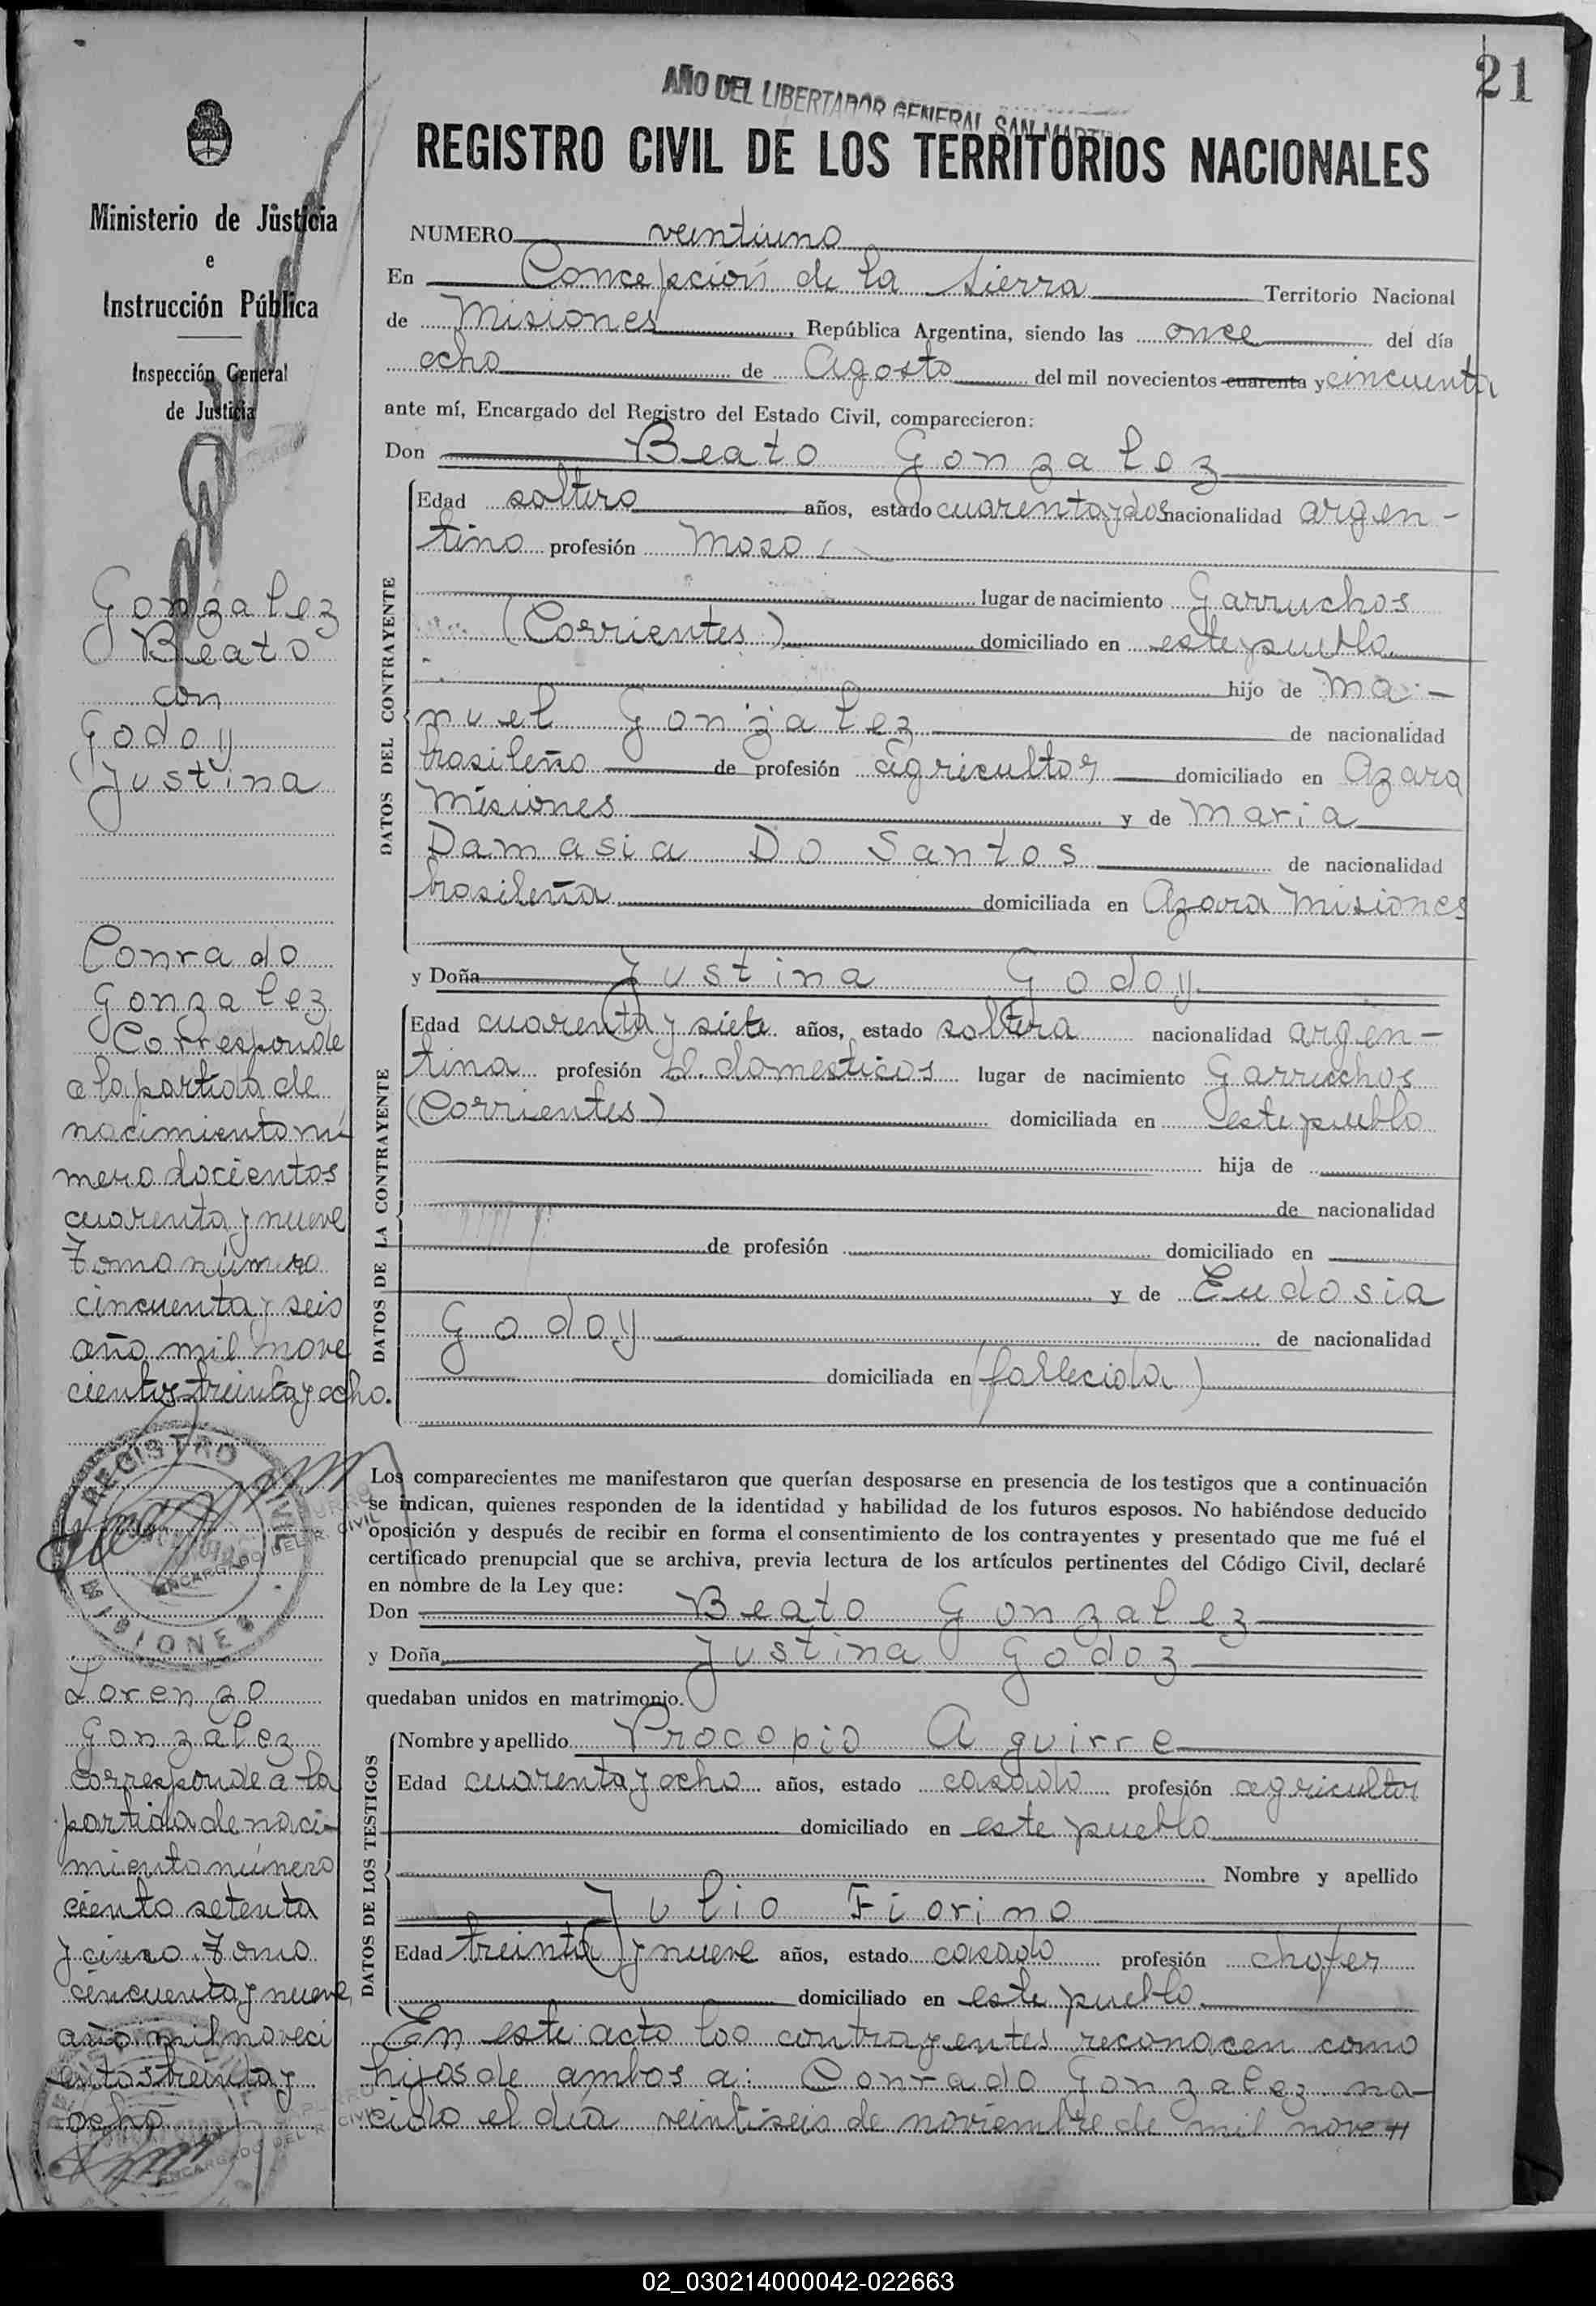 21
AÑO DEL LIBERTADOR GENERAL SAN MARTIN
REGISTRO CIVIL DE LOS TERRITORIOS NACIONALES
Ministerio de Justicia
e
Instrucción Pública
Inspección General
de Justicia
Gonzalez
Beato
con
Godoy
Justina
Conrado
Gonzalez
Corresponde
a la partida de
nacimiento nú
mero docientos
cuarenta y nueve
Tomo número
cincuenta y seis
año mil nove
cientos treinta y ocho.
REGISTRO CIVIL
ENCARGADO DEL R. CIVIL
MISIONES
Lorenzo
Gonzalez
Corresponde a la
partida de naci-
miento número
ciento setenta
y cinco Tomo
cincuenta y nueve
año mil noveci
entos treinta y
ocho
ENCARGADO DEL R. CIVIL
NUMERO veintiuno
En Concepción de la Sierra Territorio Nacional
de Misiones, República Argentina, siendo las once del día
ocho de Agosto del mil novecientos cuarenta y cincuenta
ante mí, Encargado del Registro del Estado Civil, comparecieron:
Don Beato Gonzalez
DATOS DEL CONTRAYENTE
Edad soltero años, estado cuarenta y dos nacionalidad argen-
tino profesión Moso
lugar de nacimiento Garruchos
(Corrientes) domiciliado en este pueblo
hijo de Ma-
nuel Gonzalez de nacionalidad
brasileño de profesión agricultor domiciliado en Azara
Misiones y de Maria
Damasia Do Santos de nacionalidad
brasileña domiciliada en Azara Misiones
y Doña Justina Godoy
DATOS DE LA CONTRAYENTE
Edad cuarenta y siete años, estado soltera nacionalidad argen-
tina profesión Q. domesticos lugar de nacimiento Garruchos
(Corrientes) domiciliada en este pueblo
hija de
de nacionalidad
de profesión domiciliado en
y de Eudosia
Godoy de nacionalidad
domiciliada en (fallecida)
Los comparecientes me manifestaron que querían desposarse en presencia de los testigos que a continuación
se indican, quienes responden de la identidad y habilidad de los futuros esposos. No habiéndose deducido
oposición y después de recibir en forma el consentimiento de los contrayentes y presentado que me fué el
certificado prenupcial que se archiva, previa lectura de los artículos pertinentes del Código Civil, declaré
en nombre de la Ley que:
Don Beato Gonzalez
y Doña Justina Godoz
quedaban unidos en matrimonio.
DATOS DE LOS TESTIGOS
Nombre y apellido Procopio Aguirre
Edad cuarenta y ocho años, estado casado profesión agricultor
domiciliado en este pueblo
Nombre y apellido
Julio Fiorino
Edad treinta y nueve años, estado casado profesión chofer
domiciliado en este pueblo
En este acto los contrayentes reconocen como
hijos de ambos a: Conrado Gonzalez na-
cido el día veintiseis de noviembre de mil nove
02_030214000042-022663